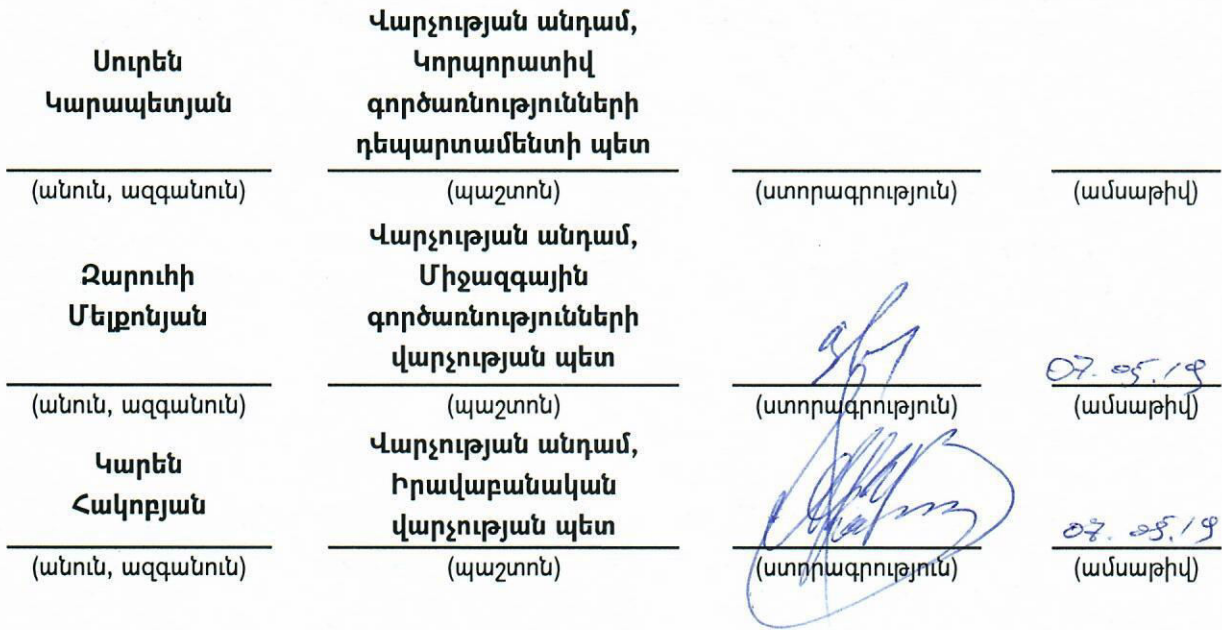 Սուրեն
Կարապետյան
Վարչության անդամ,
Կորպորատիվ
գործառնությունների
դեպարտամենտի պետ
(անուն, ազգանուն) (պաշտոն) (ստորագրություն) (ամսաթիվ)
Զարուհի
Մելքոնյան
Վարչության անդամ,
Միջազգային
գործառնությունների
վարչության պետ
07.05.19
(անուն, ազգանուն) (պաշտոն) (ստորագրություն) (ամսաթիվ)
Կարեն
Հակոբյան
Վարչության անդամ,
Իրավաբանական
վարչության պետ
07.05.19
(անուն, ազգանուն) (պաշտոն) (ստորագրություն) (ամսաթիվ)